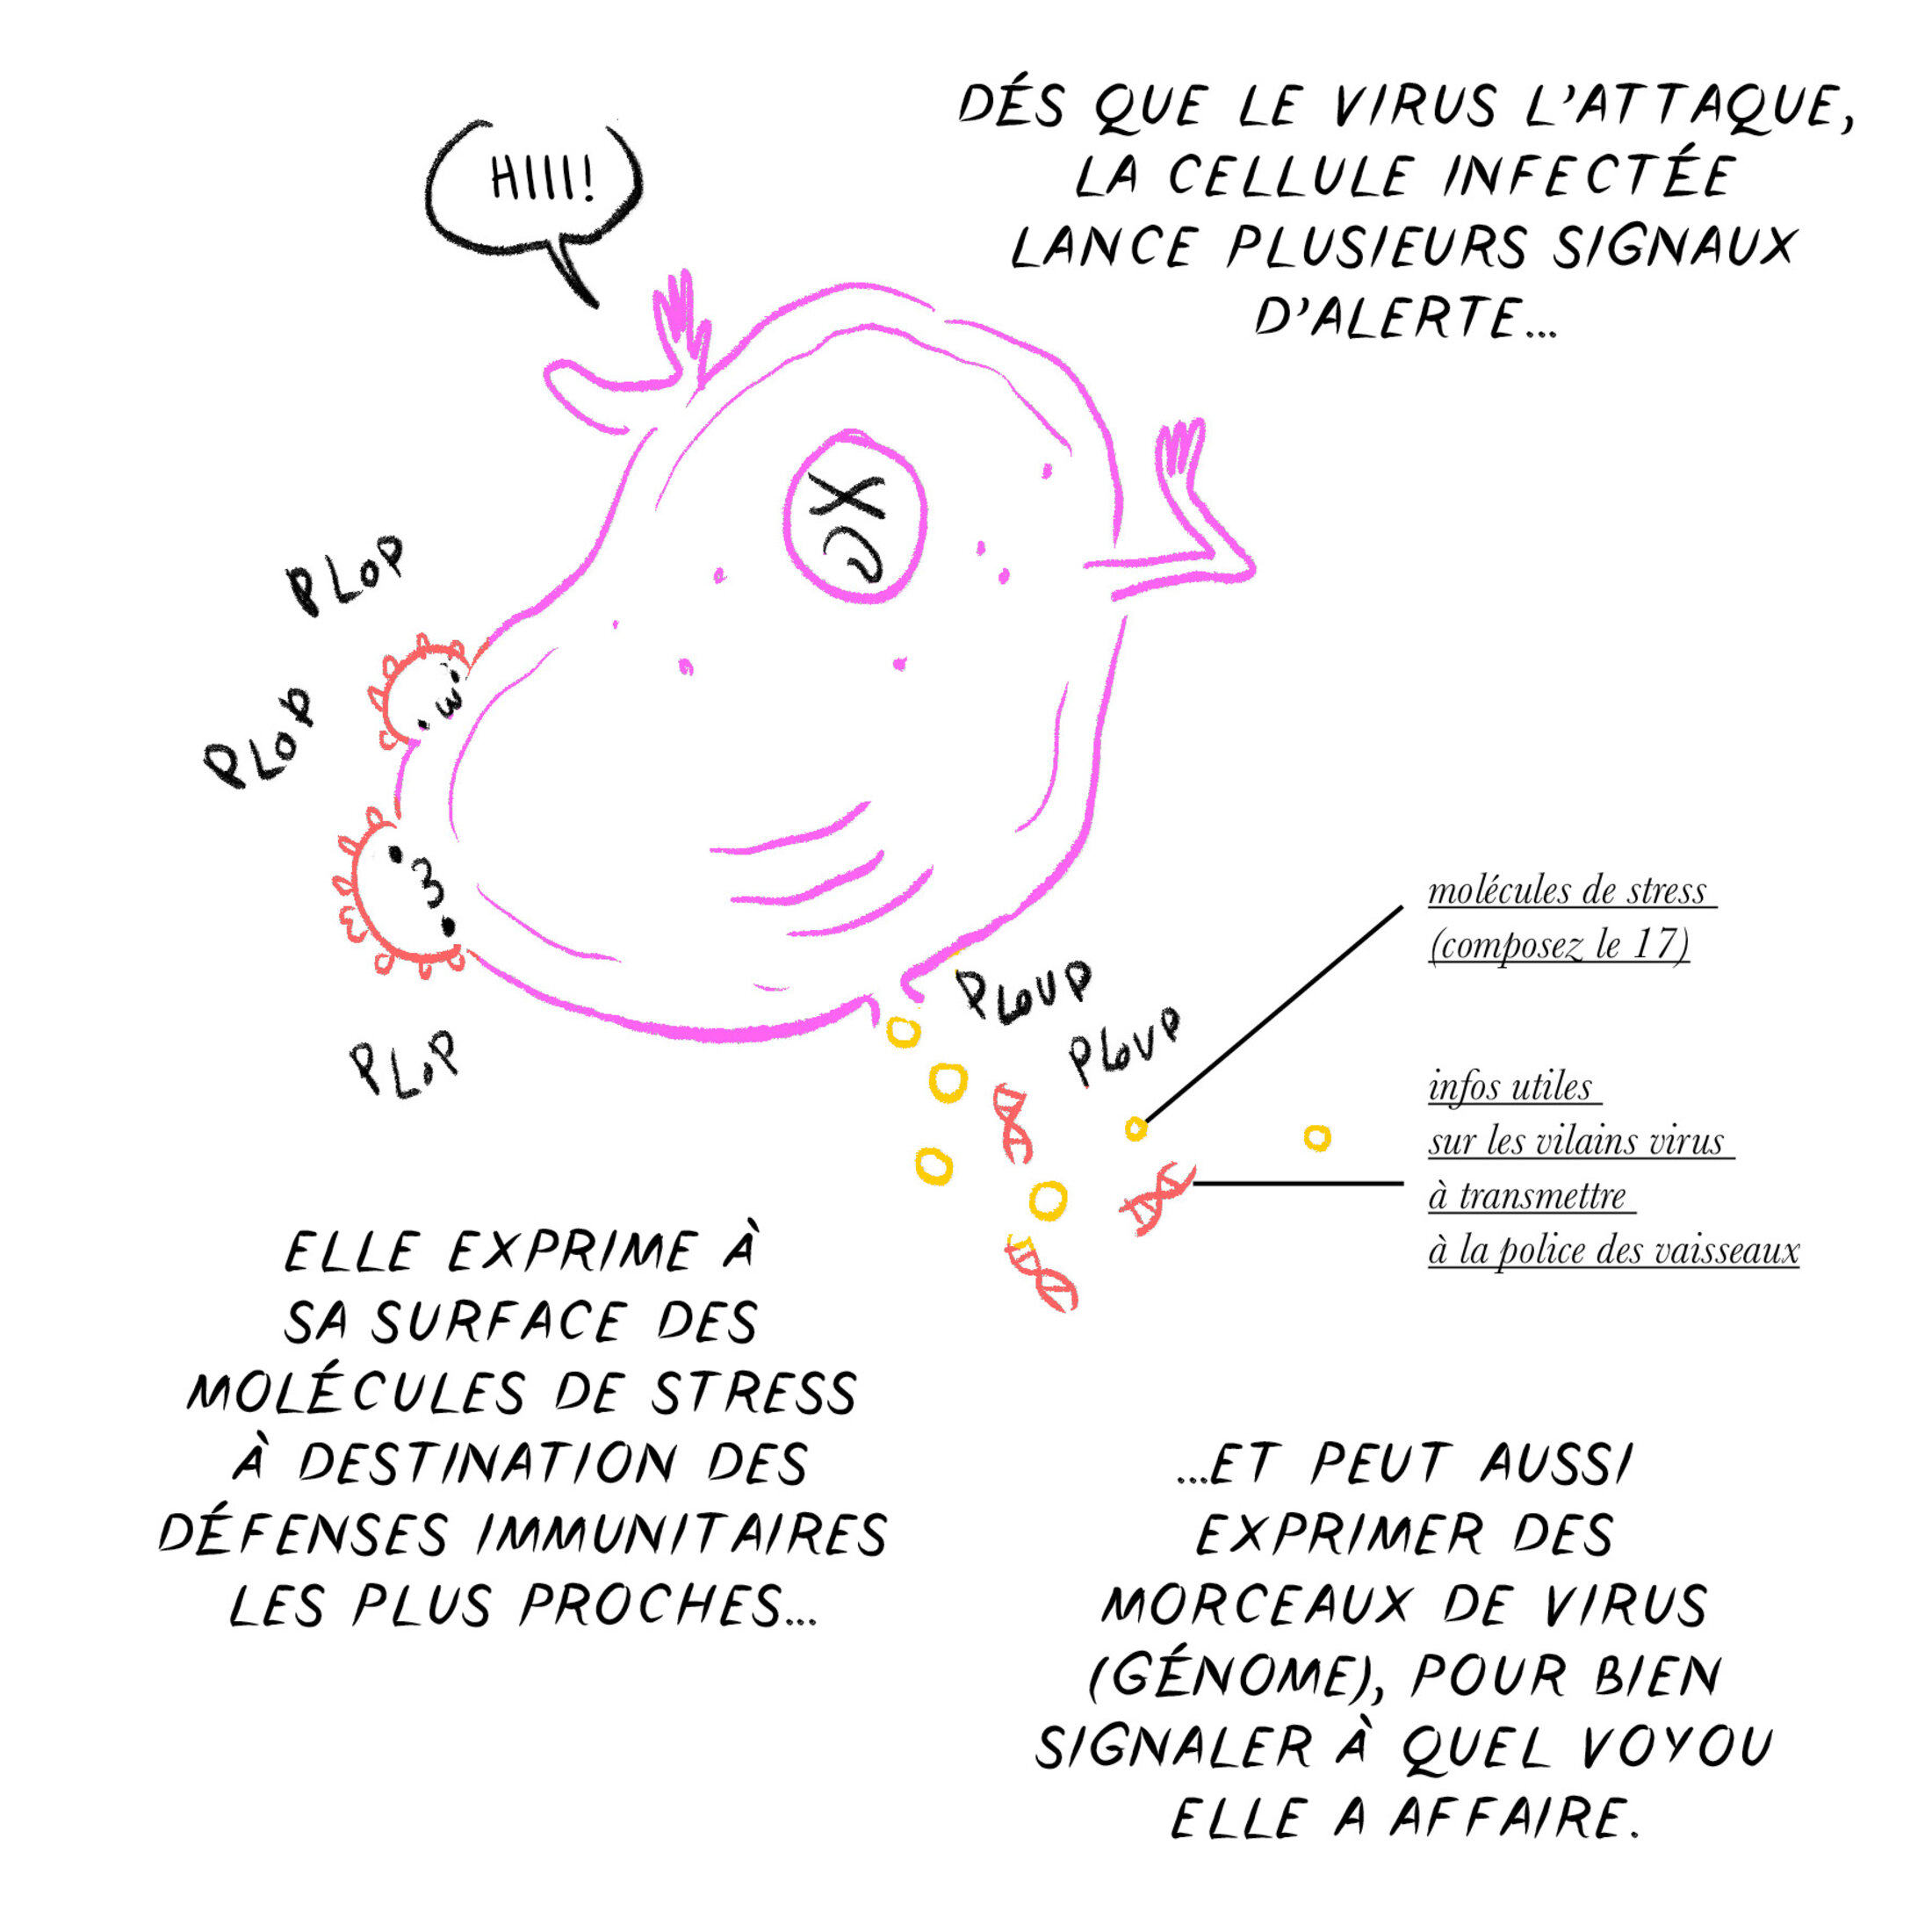 DÉS QUE LE VIRUS L'ATTAQUE,
LA CELLULE INFECTÉE
LANCE PLUSIEURS SIGNAUX
D'ALERTE...
HIIII!
PLOP
PLOP
PLOP
PLOUP
PLOUP
molécules de stress
(composez le 17)
infos utiles
sur les vilains virus
à transmettre
à la police des vaisseaux
ELLE EXPRIME À
SA SURFACE DES
MOLÉCULES DE STRESS
À DESTINATION DES
DÉFENSES IMMUNITAIRES
LES PLUS PROCHES...
...ET PEUT AUSSI
EXPRIMER DES
MORCEAUX DE VIRUS
(GÉNOME), POUR BIEN
SIGNALER À QUEL VOYOU
ELLE A AFFAIRE.